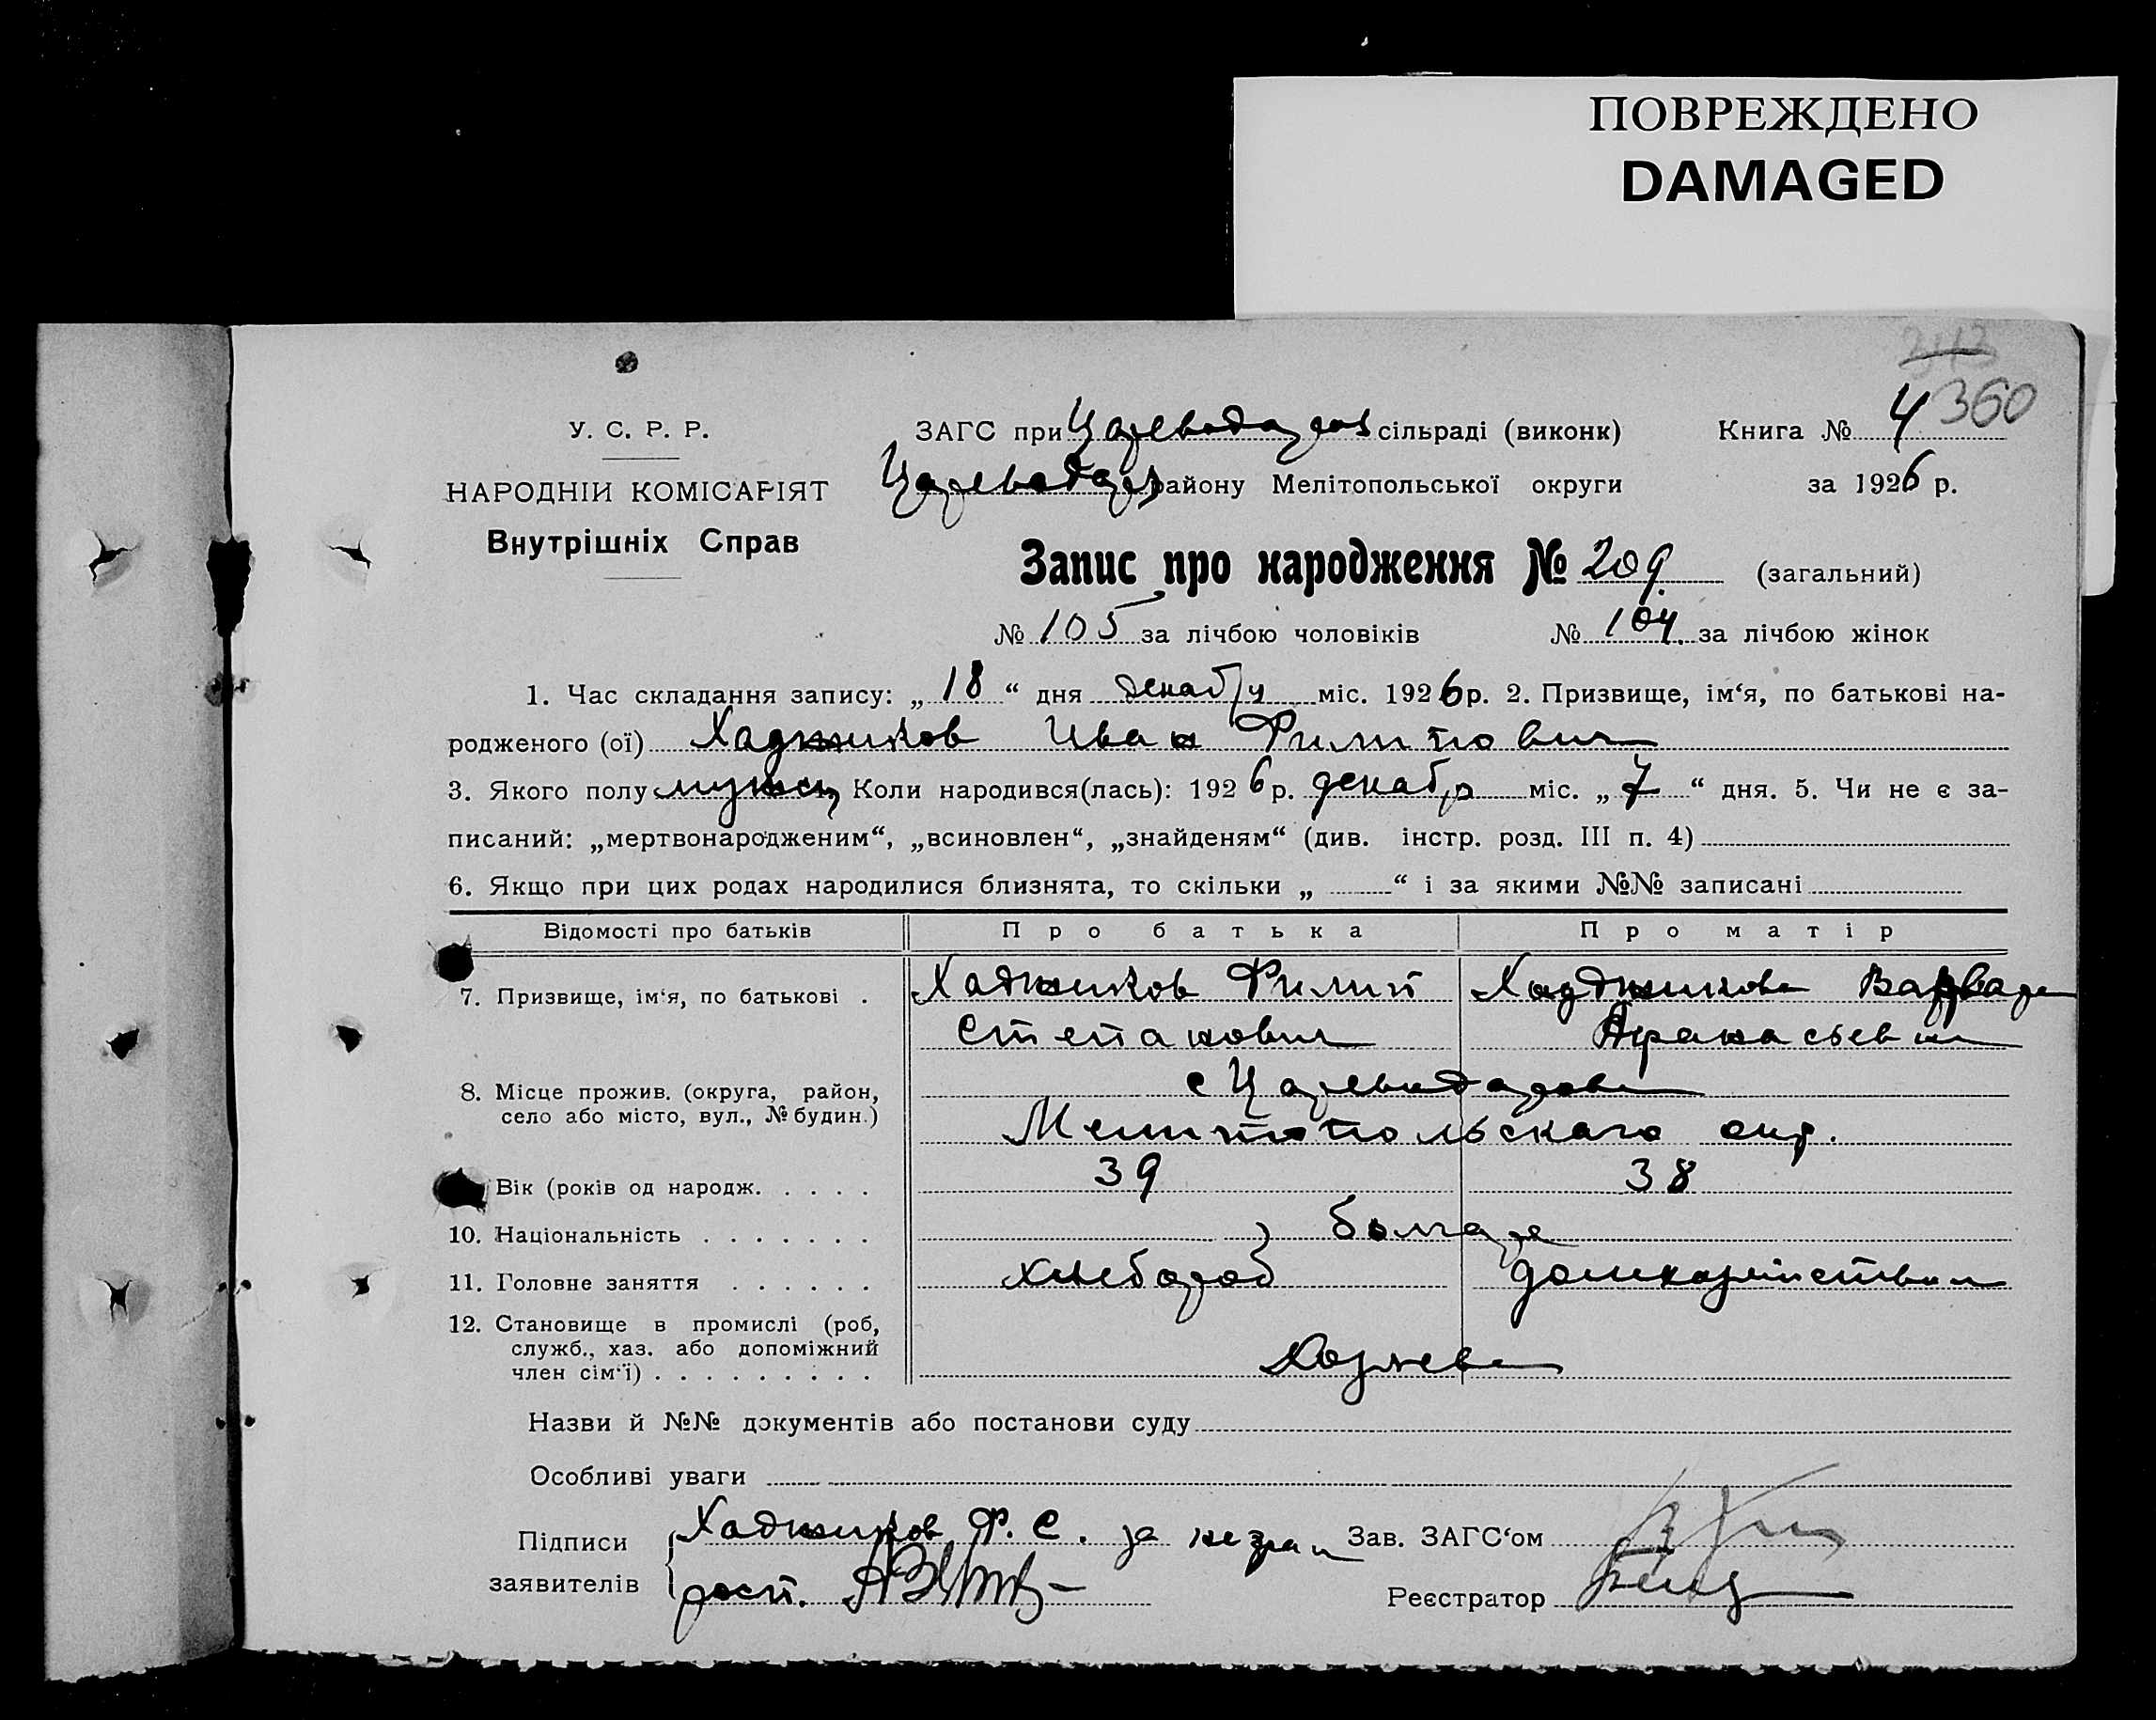 ПОВРЕЖДЕНО
DAMAGED
360
У. С. Р. Р.
НАРОДНІЙ КОМІСАРІЯТ
Внутрішніх Справ
ЗАГС при сільраді (виконк)
Книга № 4
району Мелітопольської округи
за 1926 р.
Запис про народження № 209. (загальний)
№ 105 за лічбою чоловіків № 104. за лічбою жінок
1. Час складання запису: „18“ дня декабря міс. 1926 р. 2. Призвище, ім‘я, по батькові на-
родженого (ої) Хаджиков Иван Филиппович
3. Якого полу мужск Коли народився(лась): 1926 р. декабр міс. „7“ дня. 5. Чи не є за-
писаний: „мертвонародженим“, „всиновлен“, „знайденям“ (див. інстр. розд. III п. 4)
6. Якщо при цих родах народилися близнята, то скільки „ “ і за якими №№ записані
Відомості про батьків Про батька Про матір
7. Призвище, ім‘я, по батькові . Хаджиков Филип Хаджикова Варвара
Степанович Афанасьевна
8. Місце прожив. (округа, район,
село або місто, вул., № будин.)
с
Мелитопольского окр.
Вік (років од народж. . . . . 39 38
10. Національність . . . . . . . болгаре
11. Головне заняття . . . . . . хлебороб домхозяйством
12. Становище в промислі (роб,
служб., хаз. або допоміжний
член сім‘ї) . . . . . . . . .
Назви й №№ документів або постанови суду
Особливі уваги
Підписи
заявителів
Хаджиков Ф. С. за неграм
расп.
Зав. ЗАГС‘ом
Реєстратор